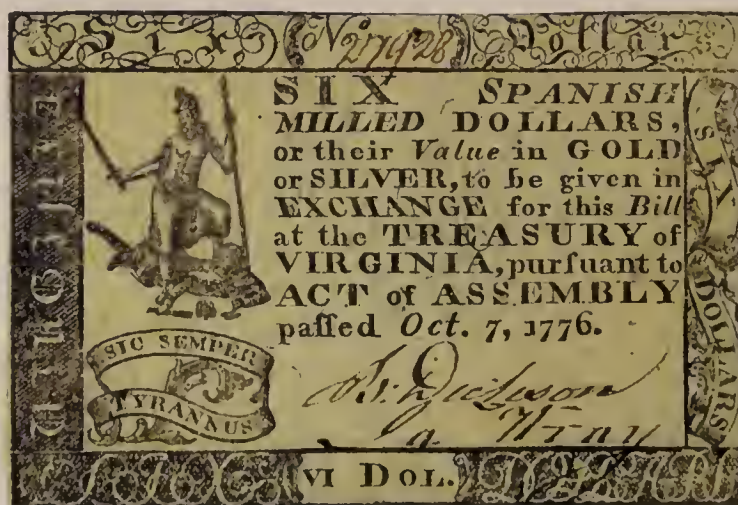 Six
No 27928
Dollars
VIRGINIA
SIX SPANISH
MILLED DOLLARS,
or their Value in GOLD
or SILVER, to be given in
EXCHANGE for this Bill
at the TREASURY of
VIRGINIA, purſuant to
ACT of ASSEMBLY
paſſed Oct. 7, 1776.
SIX DOLLARS
SIC SEMPER
TYRANNUS
VI DOL.